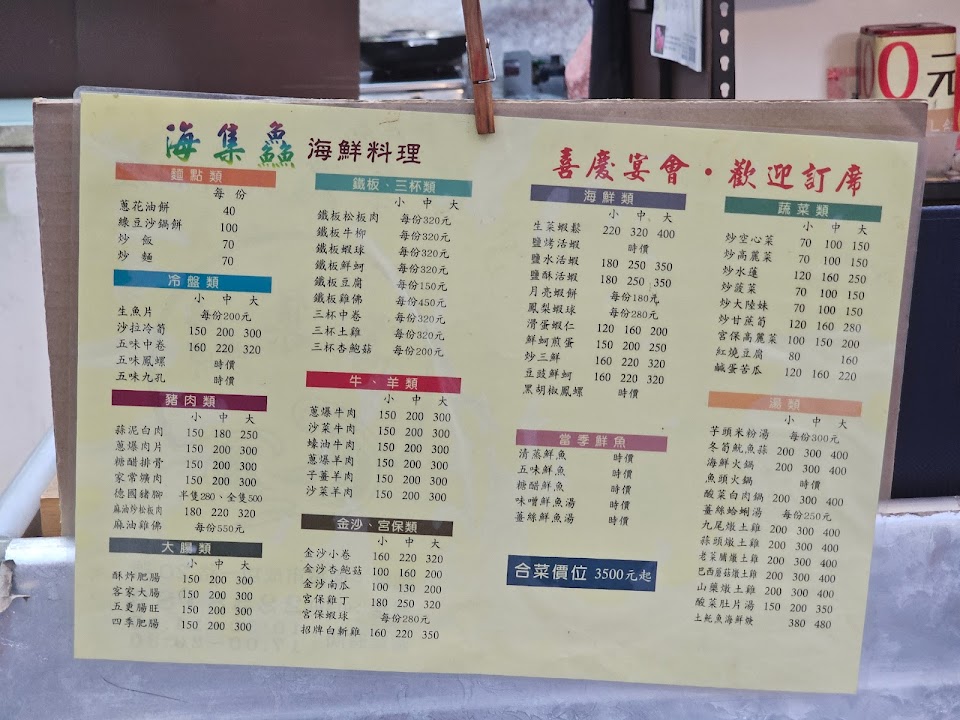 海集鱻 海鮮料理
麵點類
每份
蔥花油餅 40
綠豆沙鍋餅 100
炒飯 70
炒麵 70
冷盤類
小 中 大
生魚片 每份200元
沙拉冷筍 150 200 300
五味中卷 160 220 320
五味鳳螺 時價
五味九孔 時價
豬肉類
小 中 大
蒜泥白肉 150 180 250
蔥爆肉片 150 200 300
糖醋排骨 150 200 300
家常爌肉 150 200 300
德國豬腳 半隻280、全隻500
麻油炒松板肉 180 220 320
麻油雞佛 每份550元
大腸類
小 中 大
酥炸肥腸 150 200 300
客家大腸 150 200 300
五更腸旺 150 200 300
四季肥腸 150 200 300
鐵板、三杯類
小 中 大
鐵板松板肉 每份320元
鐵板牛柳 每份320元
鐵板蝦球 每份320元
鐵板鮮蚵 每份320元
鐵板豆腐 每份150元
鐵板雞佛 每份450元
三杯中卷 每份320元
三杯土雞 每份320元
三杯杏鮑菇 每份200元
牛、羊類
小 中 大
蔥爆牛肉 150 200 300
沙菜牛肉 150 200 300
蠔油牛肉 150 200 300
蔥爆羊肉 150 200 300
子薑羊肉 150 200 300
沙菜羊肉 150 200 300
金沙、宮保類
小 中 大
金沙小卷 160 220 320
金沙杏鮑菇 100 160 200
金沙南瓜 100 130 200
宮保雞丁 180 250 320
宮保蝦球 每份280元
招牌白斬雞 160 220 350
喜慶宴會・歡迎訂席
海鮮類
小 中 大
生菜蝦鬆 220 320 400
鹽烤活蝦 時價
鹽水活蝦 180 250 350
鹽酥活蝦 180 250 350
月亮蝦餅 每份180元
鳳梨蝦球 每份280元
滑蛋蝦仁 120 160 200
鮮蚵煎蛋 150 200 250
炒三鮮 160 220 320
豆豉鮮蚵 160 220 320
黑胡椒鳳螺 時價
當季鮮魚
清蒸鮮魚 時價
五味鮮魚 時價
糖醋鮮魚 時價
味噌鮮魚湯 時價
薑絲鮮魚湯 時價
合菜價位 3500元起
蔬菜類
小 中 大
炒空心菜 70 100 150
炒高麗菜 70 100 150
炒水蓮 120 160 250
炒菠菜 70 100 150
炒大陸妹 70 100 150
炒甘蔗筍 120 160 280
宮保高麗菜 100 150 200
紅燒豆腐 80 160
鹹蛋苦瓜 120 160 220
湯類
小 中 大
芋頭米粉湯 每份300元
冬筍魷魚蒜 200 300 400
海鮮火鍋 200 300 400
魚頭火鍋 時價
酸菜白肉鍋 200 300 400
薑絲蛤蜊湯 每份250元
九尾燉土雞 200 300 400
蒜頭燉土雞 200 300 400
老菜脯燉土雞 200 300 400
巴西蘑菇燉土雞 200 300 400
山藥燉土雞 200 300 400
酸菜肚片湯 150 200 350
土魠魚海鮮焿 380 480
0元